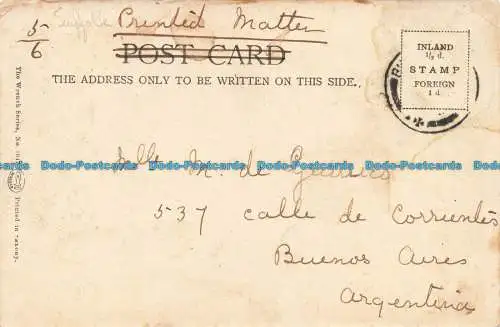 5/6 Printed Matter
POST CARD
THE ADDRESS ONLY TO BE WRITTEN ON THIS SIDE.
INLAND
½ d.
STAMP
FOREIGN
1 d.
The Wrench Series, No.
Printed in Saxony.
Dodo-Postcards Dodo-Postcards Dodo-Postcards Dodo-Postcards Dodo-Postcards
Mlle M. de
537 calle de Corrientes
Dodo-Postcards Dodo-Postcards Dodo-Postcards Dodo-Postcards Dodo-Postcards
Buenos Aires
Argentina